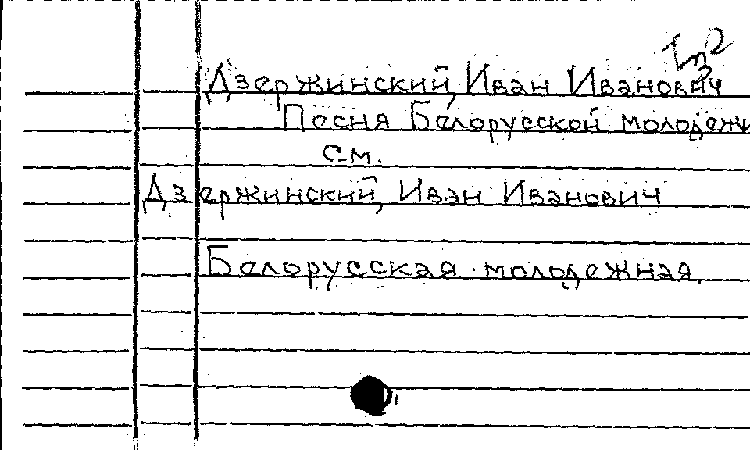 Дзержинский, Иван Иванович
Песня Белорусской молодежи
см.
Дзержинский, Иван Иванович
Белорусская молодежная.